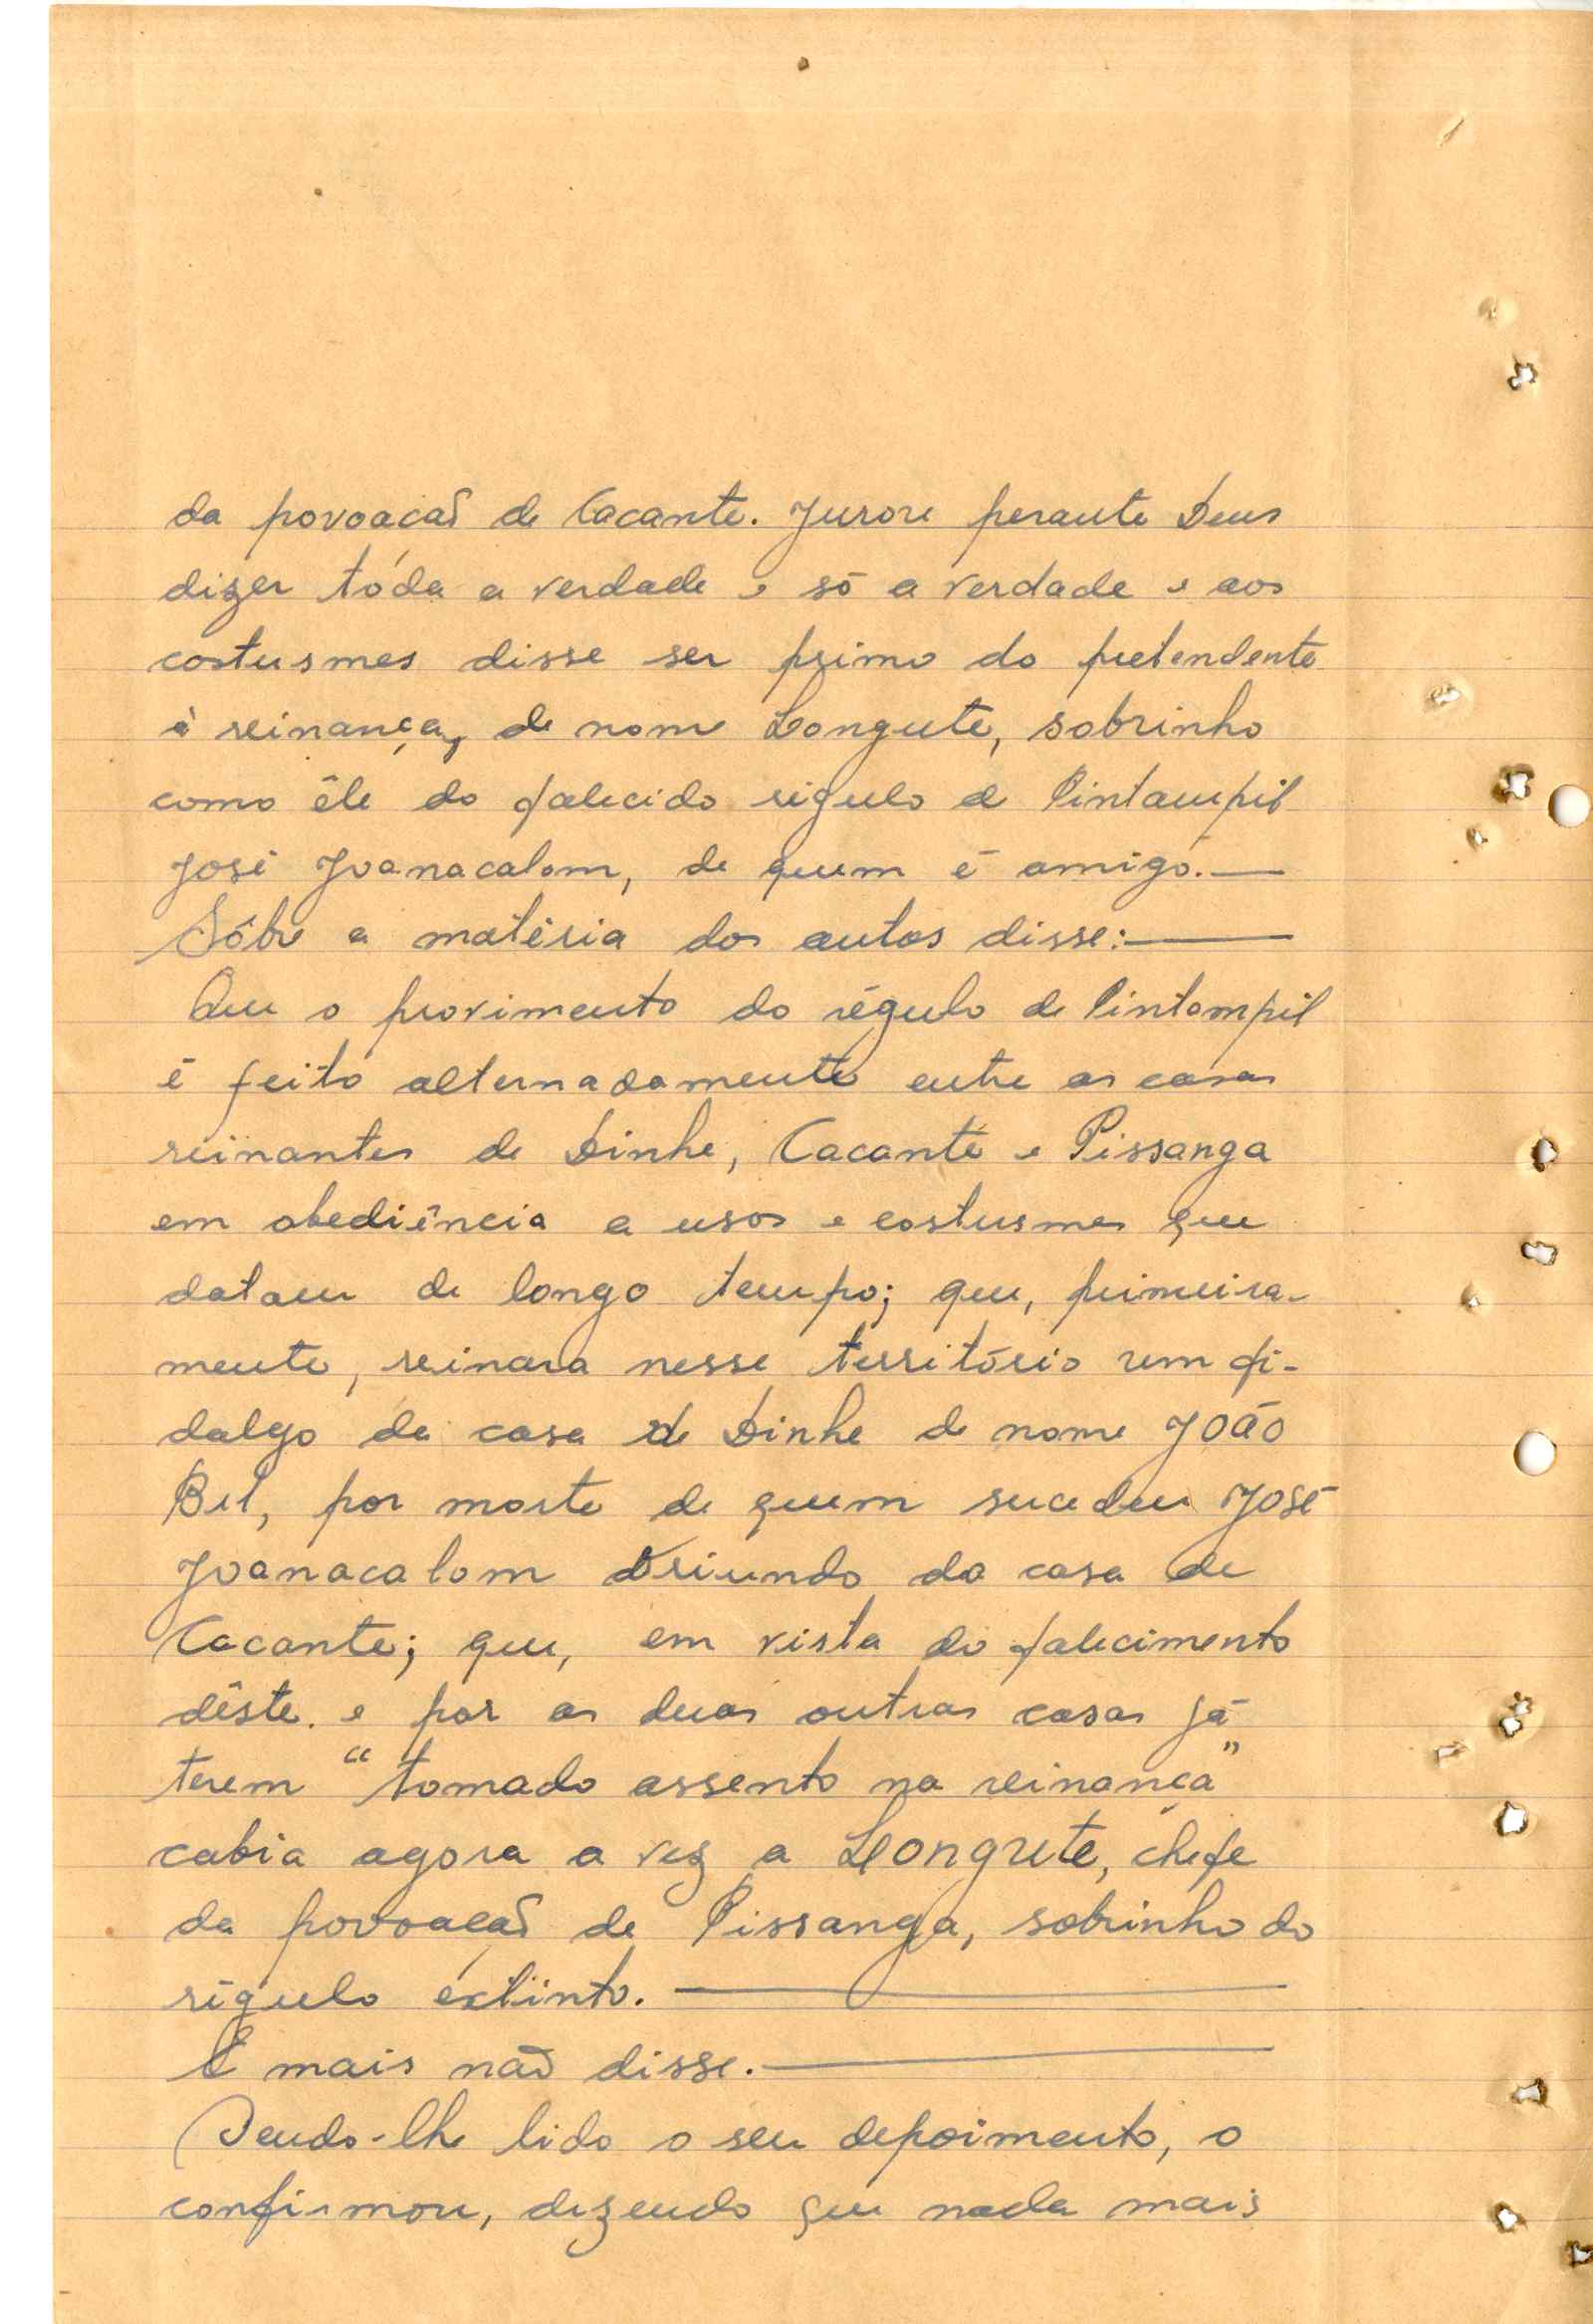 da povoação de Cacante. Jurou perante Deus
dizer tôda a verdade e só a verdade e aos
costusmes disse ser primo do pretendente
à reinança, de nome Longute, sobrinho
como êle do falecido régulo de Pintampil
José Joanacalom, de quem é amigo.—
Sôbre a matéria dos autos disse:—
Que o provimento do régulo de Pintampil
é feito alternadamente entre as casas
reinantes de Binhe, Cacante e Pissanga
em obediência a usos e costusmes que
datam de longo tempo; que, primeira-
mente, reinara nesse território um fi-
dalgo da casa de Binhe de nome João
Bul, por morte de quem sucedeu José
Joanacalom oriundo da casa de
Cacante; que, em vista do falecimento
dêste. e por as duas outras casas já
terem "tomado assento na reinança"
cabia agora a vez a Longute, chefe
da povoação de Pissanga, sobrinho do
régulo extinto. —
E mais não disse.—
Sendo-lhe lido o seu depoimento, o
confirmou, dizendo que nada mais